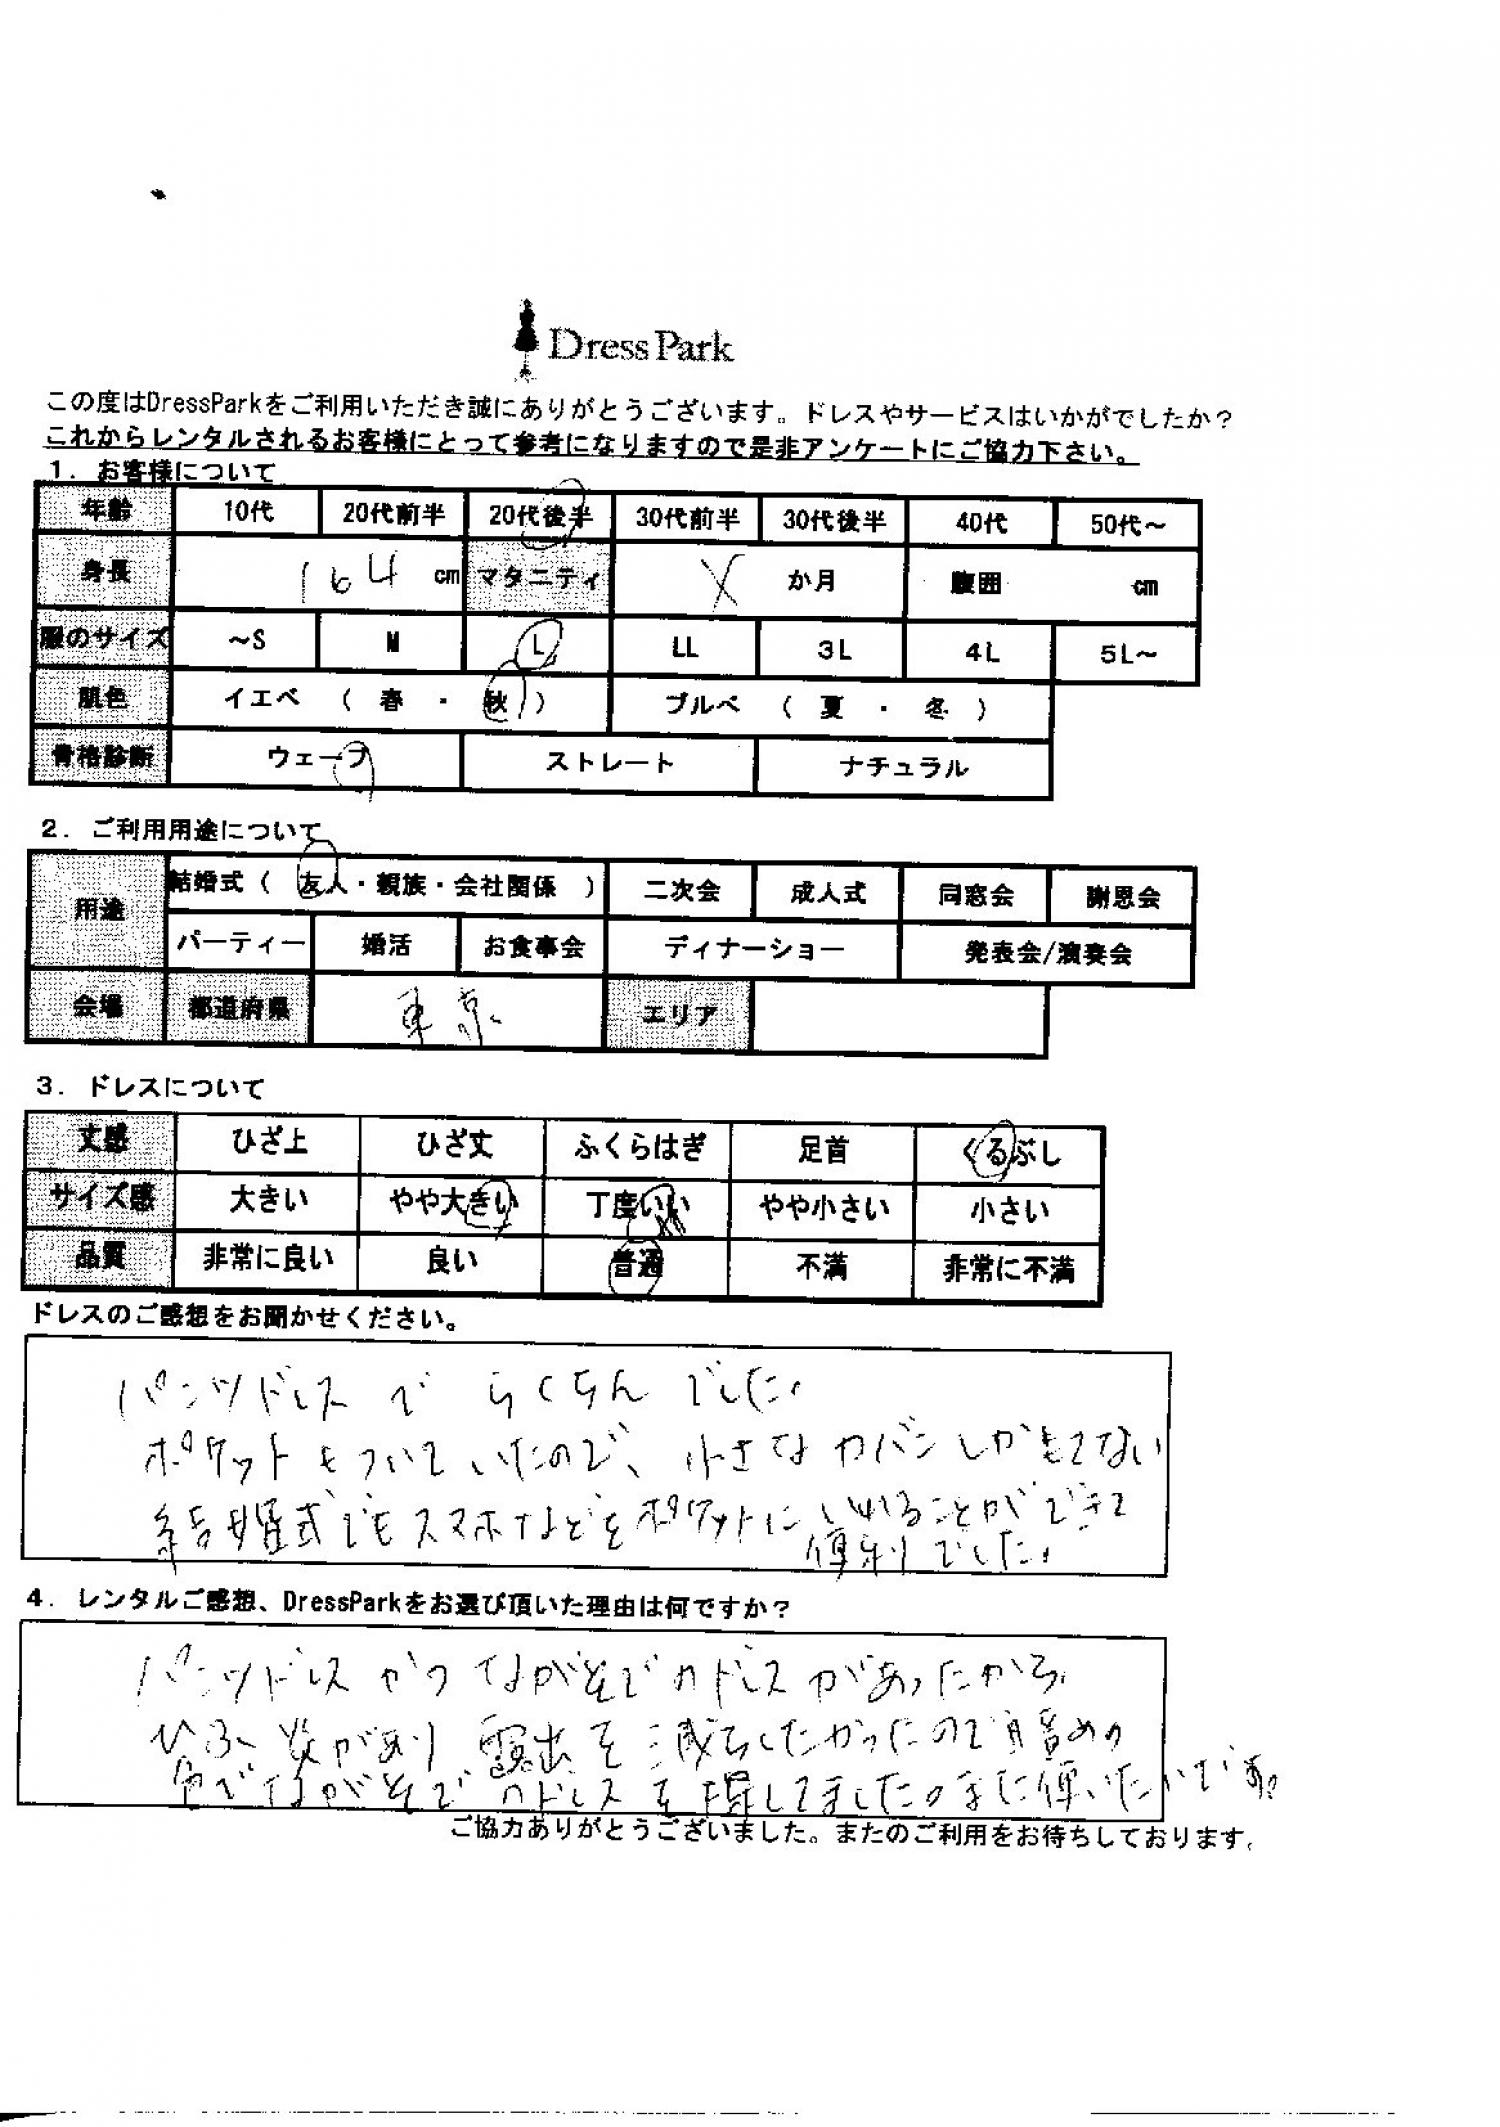 Dress Park
この度はDressParkをご利用いただき誠にありがとうございます。ドレスやサービスはいかがでしたか？
これからレンタルされるお客様にとって参考になりますので是非アンケートにご協力下さい。
1．お客様について
年齢 10代 20代前半 20代後半 30代前半 30代後半 40代 50代～
身長 164 cm マタニティ X か月 腹囲 cm
服のサイズ ～S M L LL 3L 4L 5L～
肌色 イエベ （ 春 ・ 秋 ） ブルベ （ 夏 ・ 冬 ）
骨格診断 ウェーブ ストレート ナチュラル
2．ご利用用途について
用途 結婚式（ 友人・親族・会社関係 ） 二次会 成人式 同窓会 謝恩会
パーティー 婚活 お食事会 ディナーショー 発表会/演奏会
会場 都道府県 東京 エリア
3．ドレスについて
丈感 ひざ上 ひざ丈 ふくらはぎ 足首 くるぶし
サイズ感 大きい やや大きい 丁度いい やや小さい 小さい
品質 非常に良い 良い 普通 不満 非常に不満
ドレスのご感想をお聞かせください。
パンツドレスで らくちん でした。
ポケットもついていたので、小さなカバンしかもてない
結婚式でもスマホなどをポケットにいれることができて
便利でした。
4．レンタルご感想、DressParkをお選び頂いた理由は何ですか？
パンツドレス かつ ながそでのドレスがあったから。
ひふ炎があり 露出を減らしたかったので暗めの
色でながそでのドレスを探してました。また使いたいです。
ご協力ありがとうございました。またのご利用をお待ちしております。